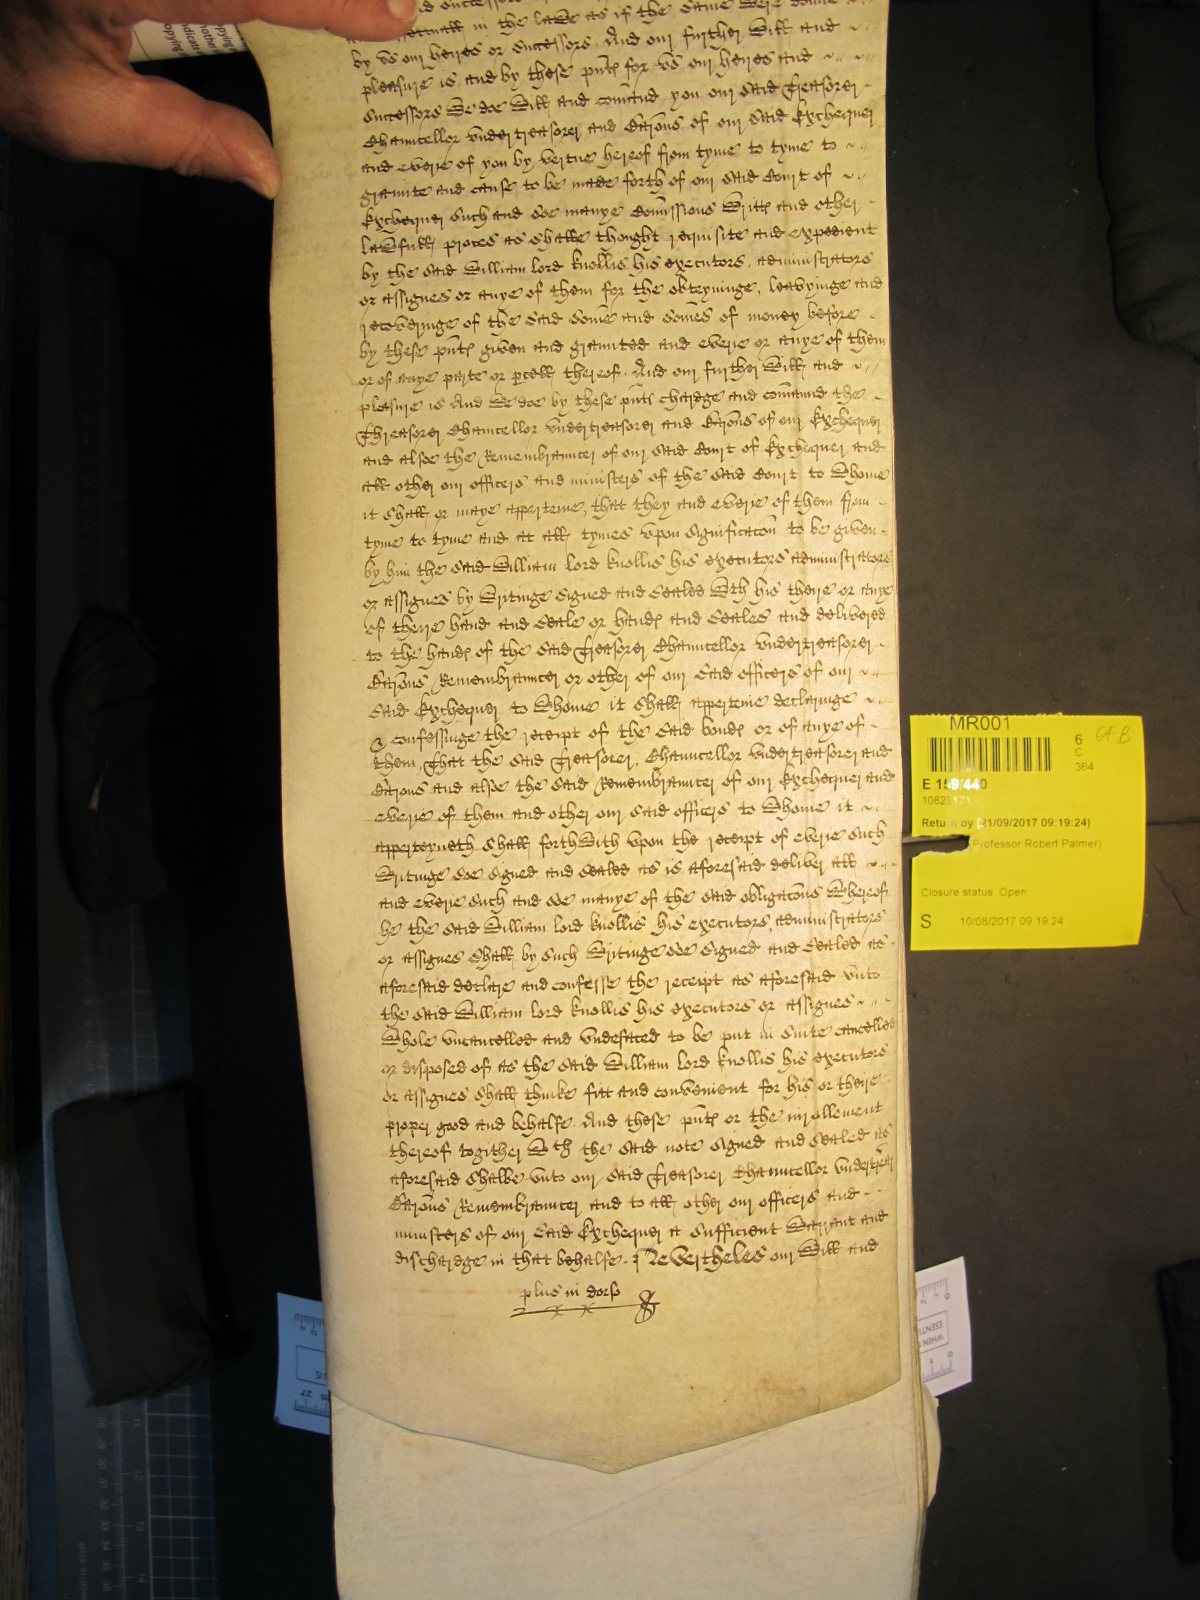 id successors
effectuall in the lawe as if the same were donne
by vs our heires or successors. And our further will and
pleasure is and by these pnts for vs our heires and
successors we doe will and comaund you our said Treasorer
Chauncellor vndertreasorer and Barons of our said Exchequer
and everie of you by vertue hereof from tyme to tyme to
graunte and cause to be made forth of our said Court of
Exchequer such and soe manye Comissions writts and other
lawfull proces as shalbe thought requisite and expedient
by the said William lord Knollis his executors, administrators
or assignes or anye of them for the obteyninge, leavyinge and
recoveringe of the said Some and Somes of money before
by these pnts given and graunted and everie or anye of them
or of anye parte or pcell thereof. And our further will and
pleasure is And we doe by these pnts chardge and comaund the
Threasorer Chauncellor vndertreasorer and Barons of our Exchequer
and alsoe the Remembrauncer of our said Court of Exchequer and
all other our officers and ministers of the said Court to whome
it shall or maye apperteine, that they and everie of them from
tyme to tyme and at all tymes vpon significacon to be given
by him the said William lord Knollis his executors administrators
or assignes by writinge signed and sealed wth his theire or anye
of theire hand and seale or hands and seales and delivered
to the hands of the said Treasorer Chauncellor vndertreasorer
Barons Remembrauncer or other of our said officers of our
said Exchequer to whome it shall apperteine declaringe
& confessinge the receipt of the said bonds or of anye of
them, That the said Treasorer, Chauncellor vndertreasorer and
Barons and alsoe the said Remembrauncer of our Exchequer and
everie of them and other our said officers to whome it
apperteyneth shall forthwith vpon the receipt of everie such
writinge soe signed and sealed as is aforesaid deliver all
and everie such and soe manye of the said obligacons whereof
he the said William lord Knollis his executors administrators
or assignes shall by such writinge soe signed and sealed as
aforesaid declare and confesse the receipt as aforesaid vnto
the said William lord Knollis his executors or assignes
whole vncancelled and vndefaced to be put in suite cancelled
or disposed of as the said William lord Knollis his executors
or assignes shall thinke fitt and convenient for his or theire
proper good and behalfe. And these pnts or the inrollement
thereof togither wth the said note signed and sealed as
aforesaid shalbe vnto our said Treasorer Chauncellor vndertrear
Barons Remembrauncer and to all other our officers and
ministers of our said Exchequer a sufficient warrant and
dischardge in that behalfe. Nevertheles our will and
plus in dorso
MR001
6
C
364
E 159/440
Return by (21/09/2017 09:19:24)
(Professor Robert Palmer)
Closure status Open
S 10/08/2017 09:19:24